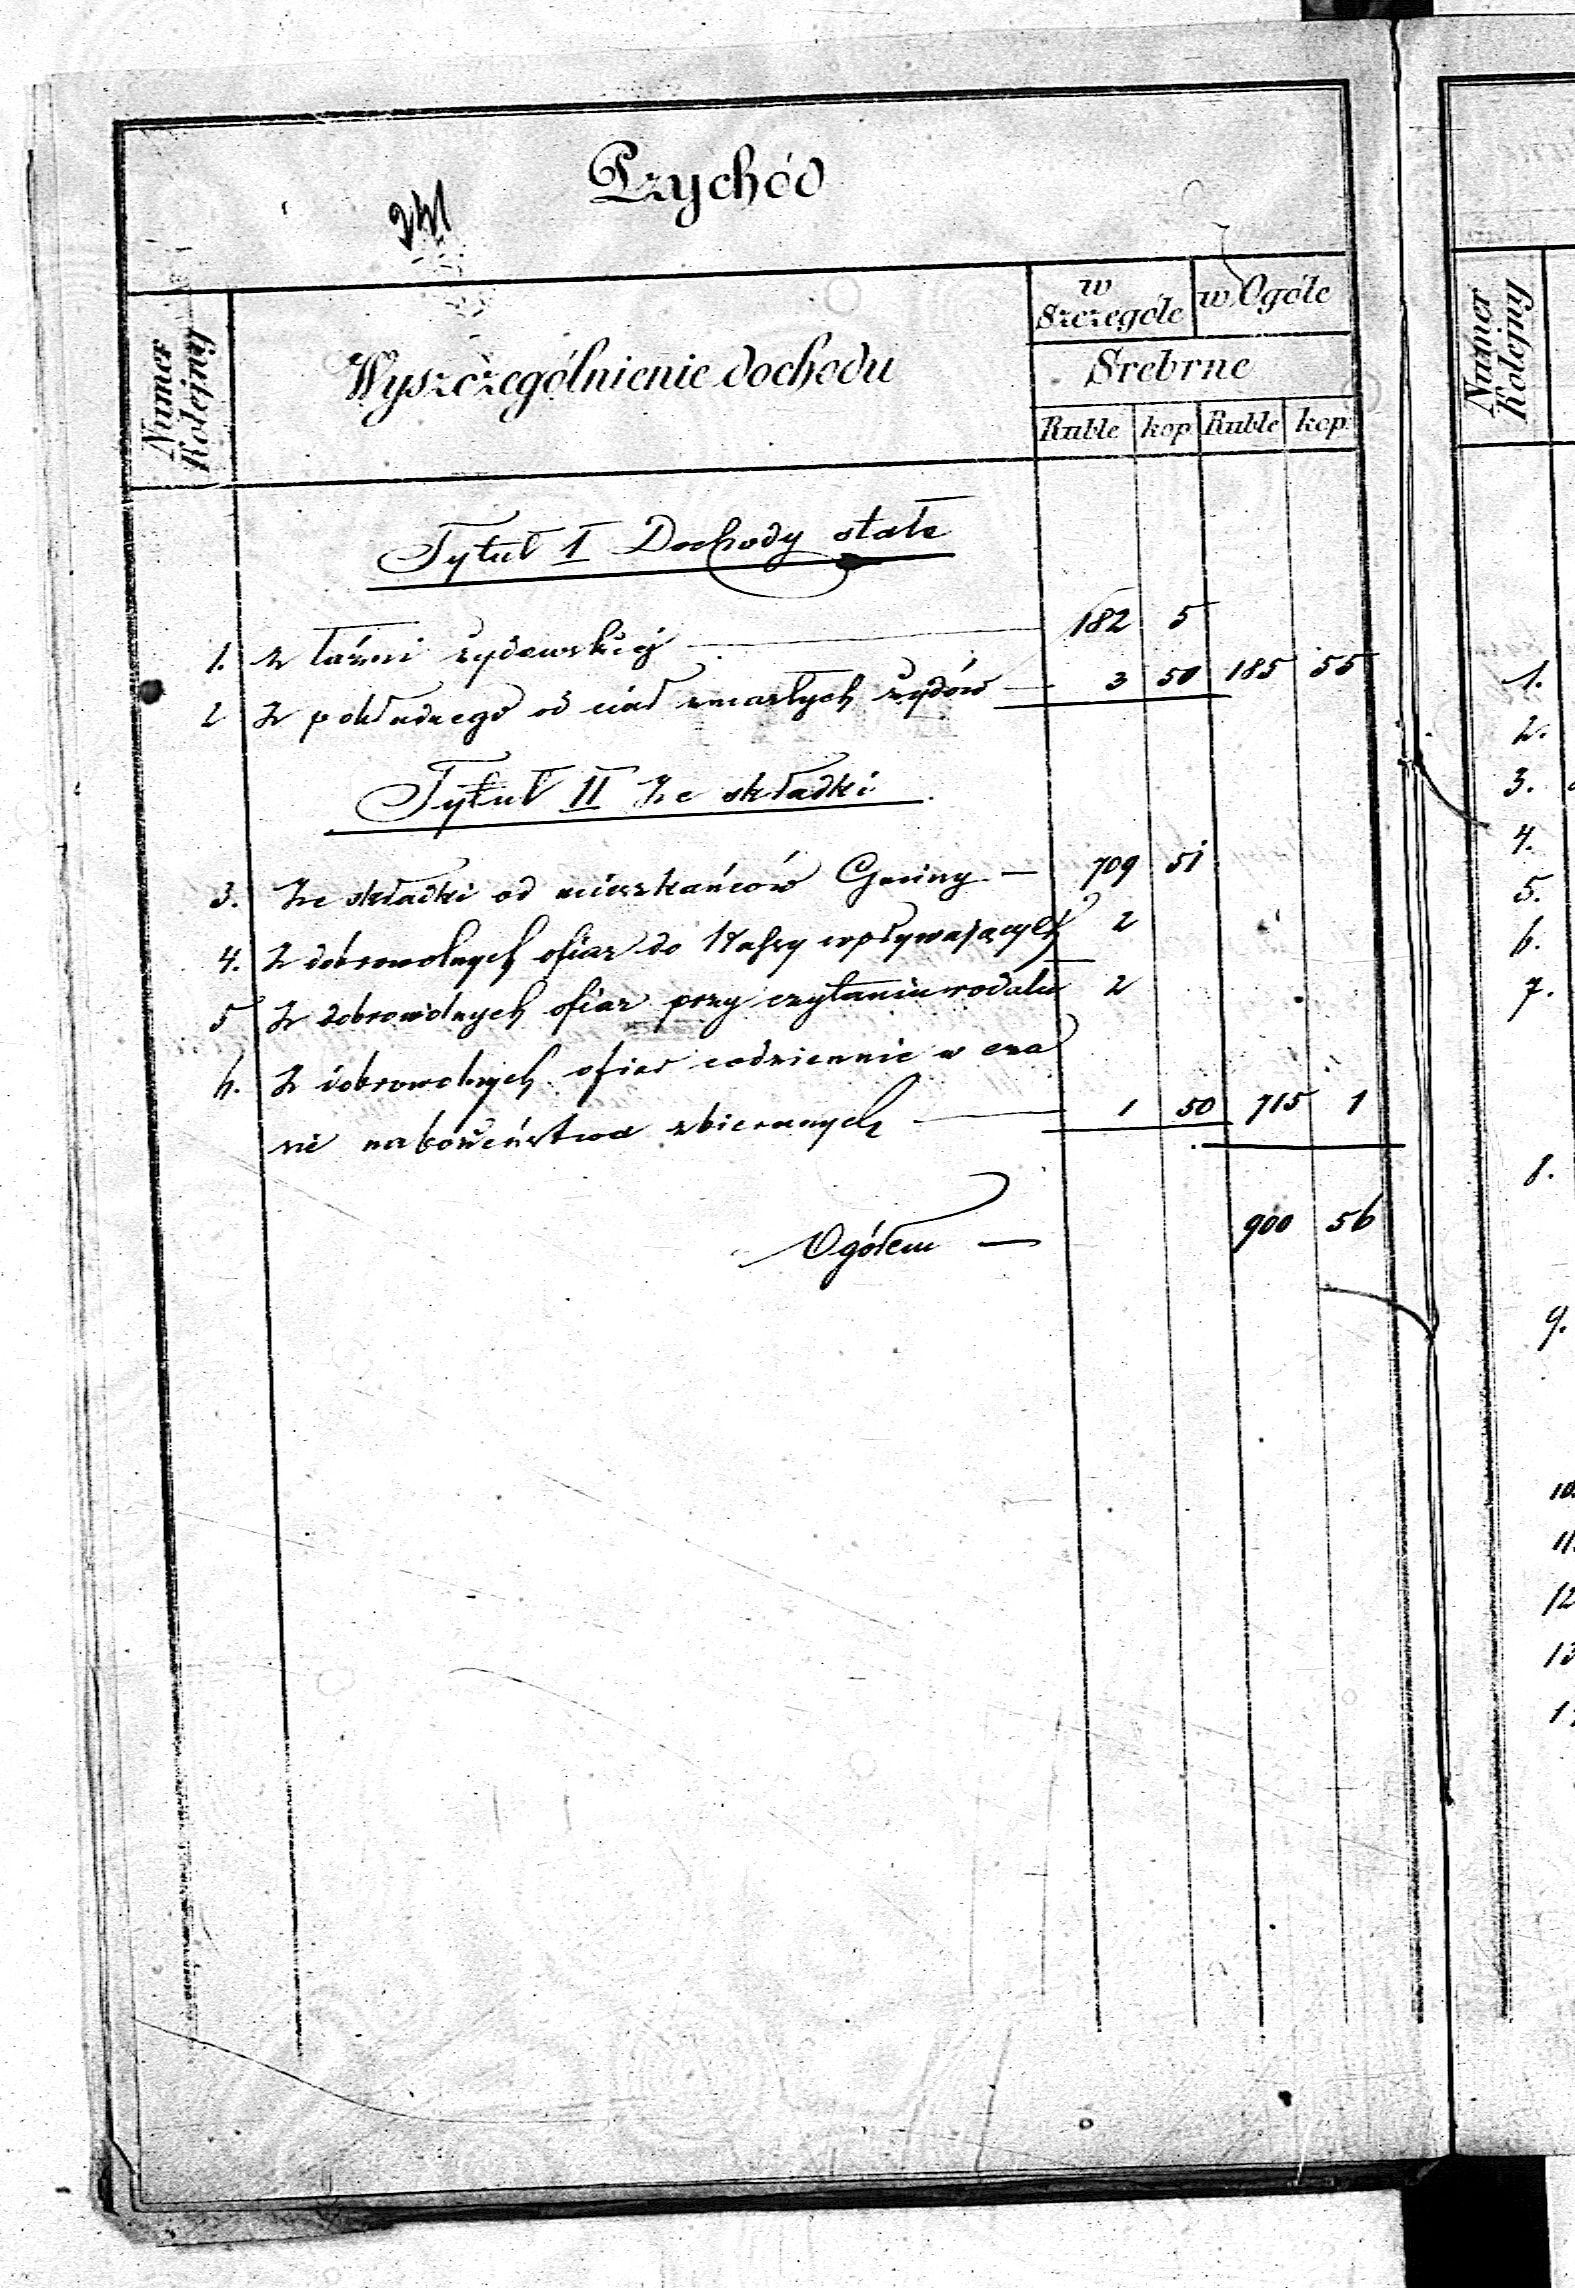 241
Przychód
Numer Kolejny
Wyszczególnienie dochodu
w Szczególe
w Ogóle
Srebrne
Ruble kop Ruble kop.
Tytuł I Dochody stałe
1. z łaźni żydowskiej — 182 5
2 Z pokładnego od ciał zmarłych żydów — 3 50 185 55
Tytuł II Ze składki
3. Ze składki od mieszkańców Gminy — 709 51
4. Z dobrowolnych ofiar do Kassy wpływających 2
5 Z dobrowolnych ofiar przy czytaniu rodału 2
6. Z dobrowolnych ofiar codziennie w cza
sie nabożeństwa zbieranych — 1 50 715 1
Ogółem — 900 56
Numer Kolejny
1.
2.
3.
4.
5.
6.
7.
8.
9.
10.
11.
12
13